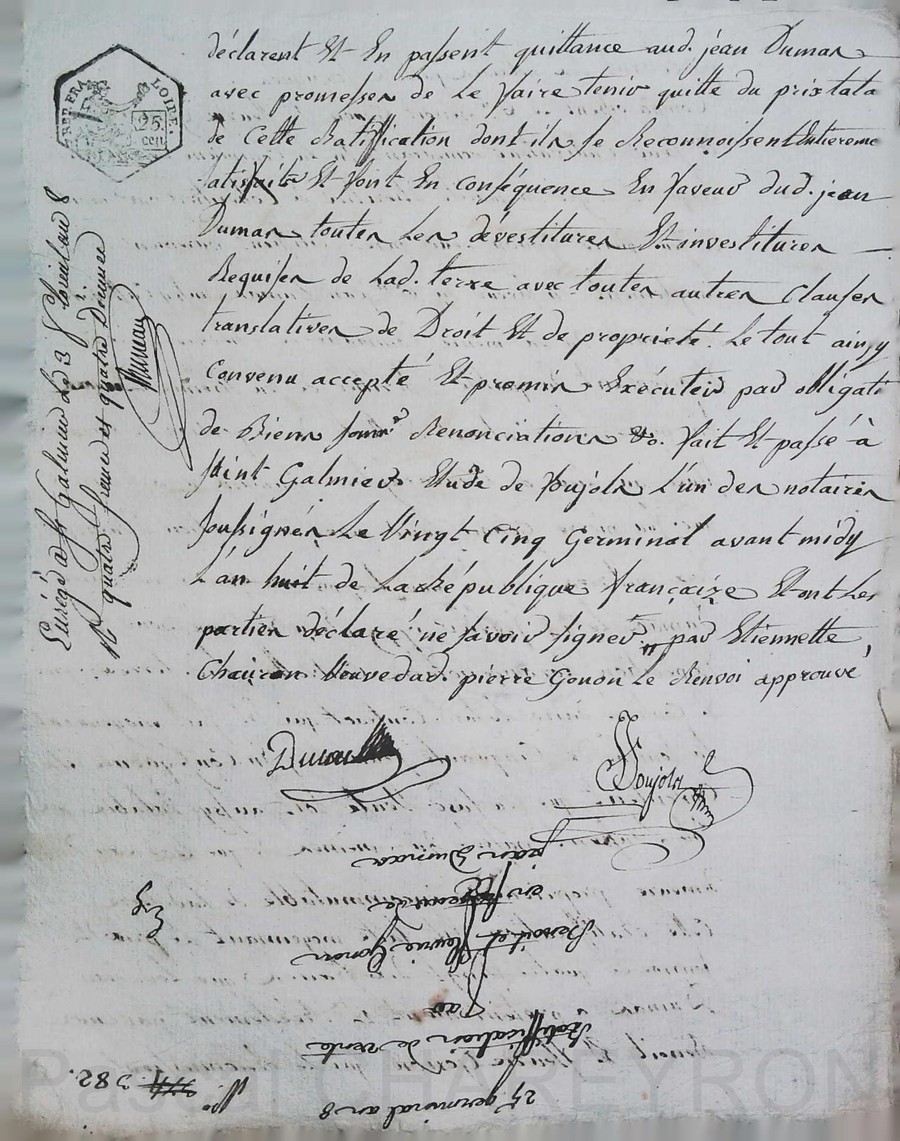 REP. FRA.
LOIRE.
25.
cen.
déclarent Et En passent quittance aud. jean Dumas
avec promesses de le faire tenir quitte du prix tata
de Cette Ratiffication dont ils se Reconnoissent Entiereme
satisfaits Et font En conséquence En faveur dud. jean
Dumas toutes Les dévestitures Et investitures
Requises de Lad. terre avec toutes autres Clauses
translatives de Droit Et de proprieté. Le tout ainsy
Convenu accepté Et promis Exécuter par obligati
de Biens Renonciations &c. fait Et passé à
saint Galmier Etude de Poujols L'un des notaires
soussignés Le Vingt Cinq Germinal avant midy
L'an huit de La République française Et ont Les
parties déclaré ne savoir signer par Etiennette
Veuve dud. pierre Gonon Le Renvoi approuvé
Enrégé a St Galmier Le 3 floréal an 8
quatre francs et quatre Decimes
Poujols
25 germinal an 8
Nº 382.
Ratiffication de vente
par
Benoit et fleurie Gonon
en de
jean Dumas